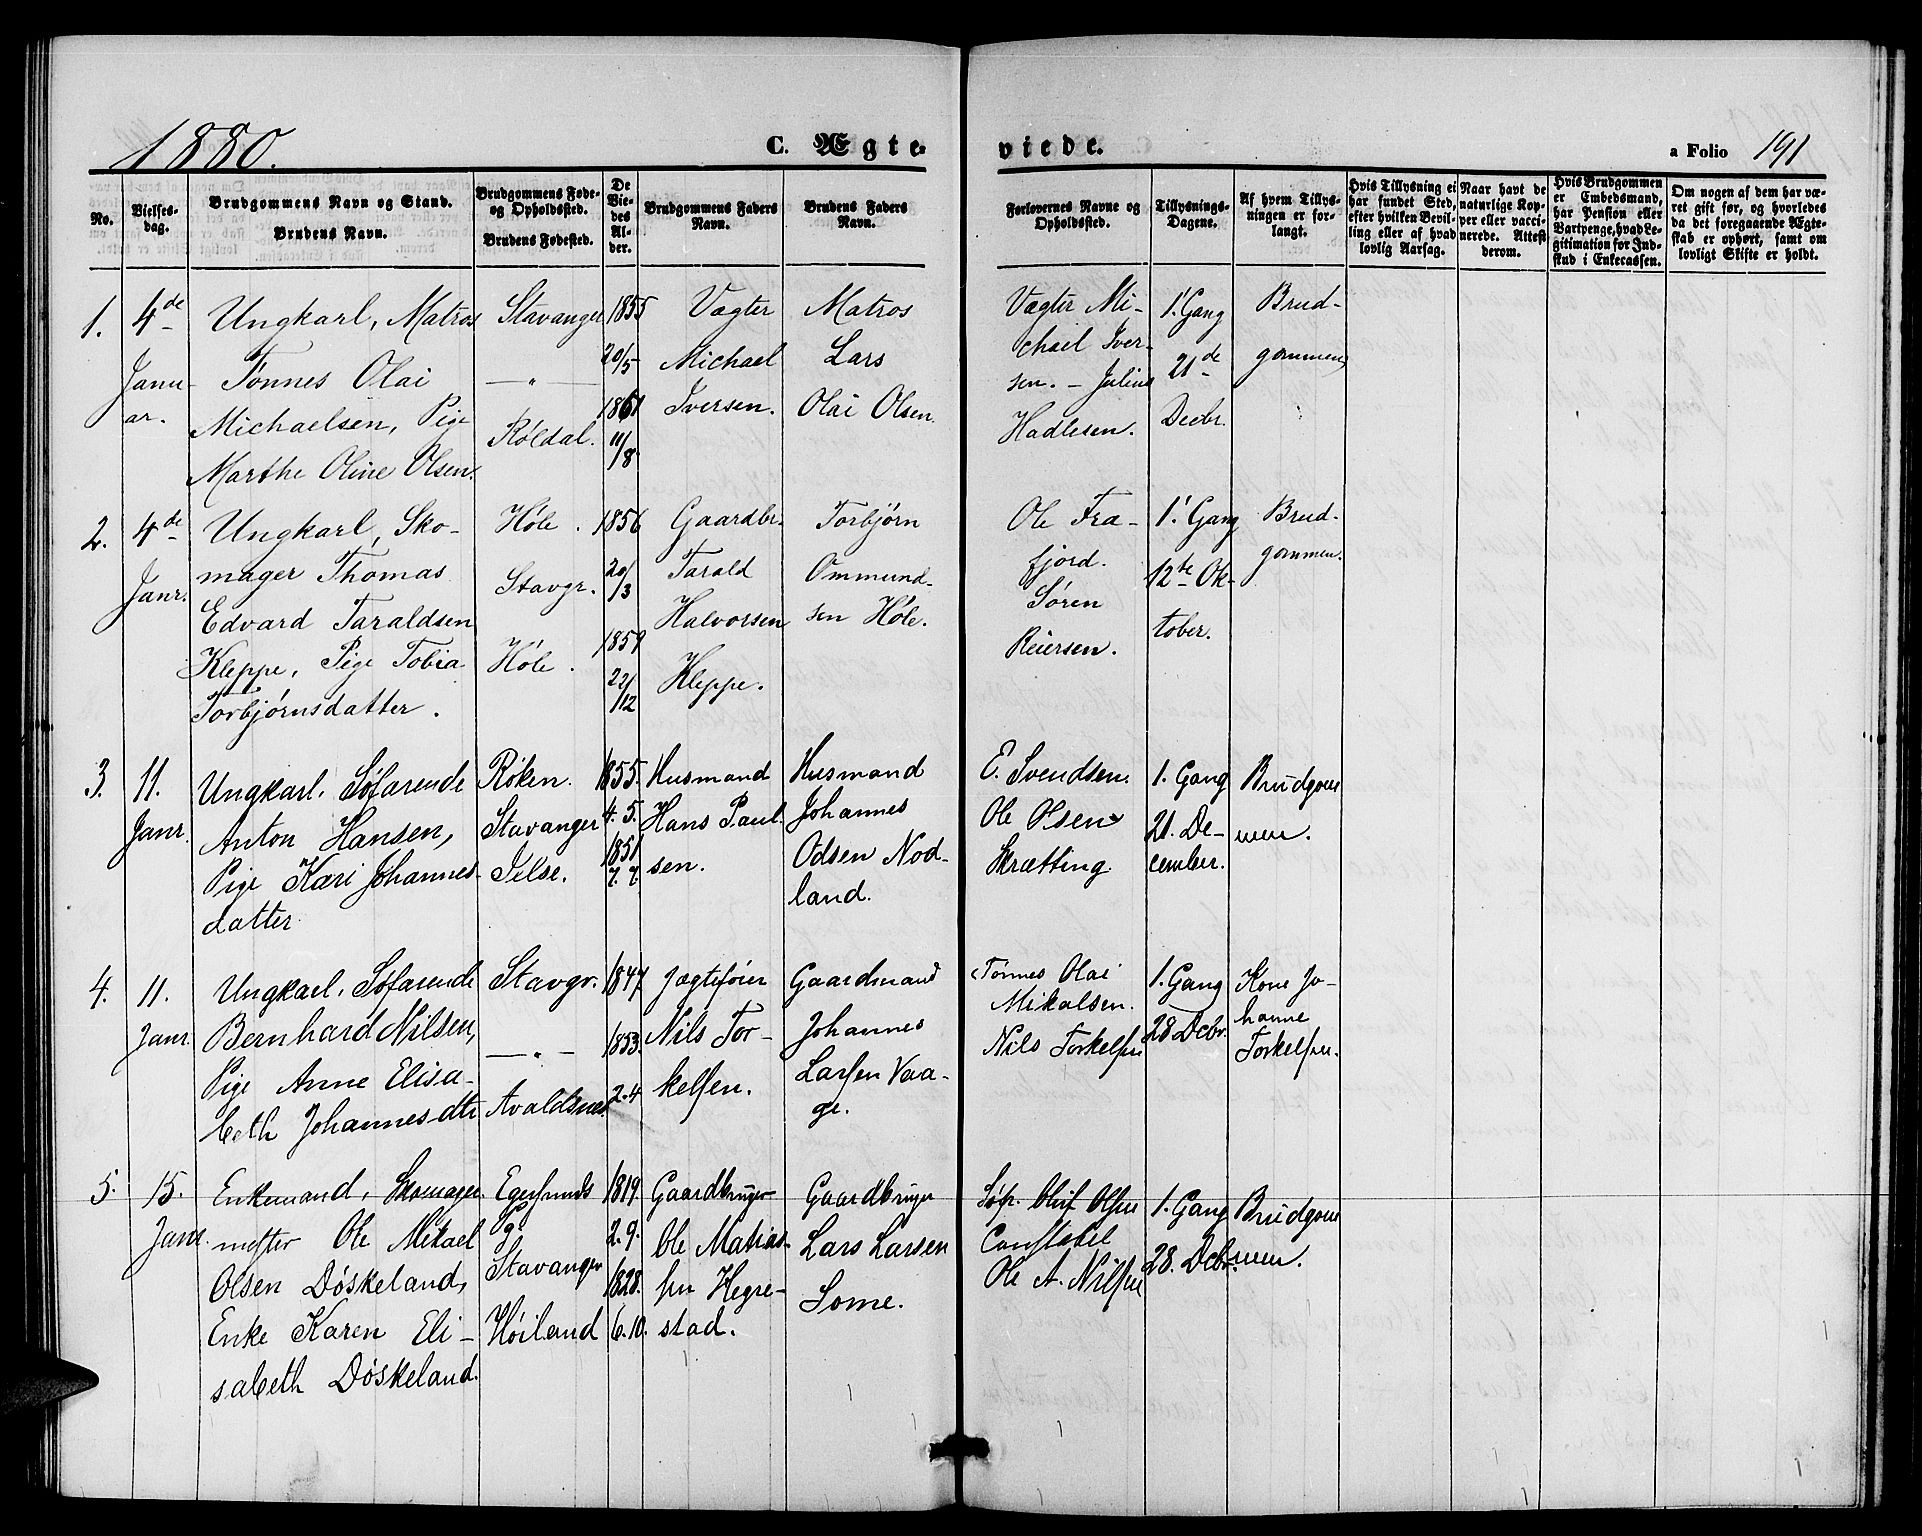 1880.
C. Ægte- viede.
a Folio 191
No.
Vielses-
dag.
Brudgommens Navn og Stand.
Brudens Navn.
Brudgommens Føde-
og Opholdssted.
Brudens Fødested.
De
Vie-
des
Al-
der.
Brudgommens Faders
Navn.
Brudens Faders
Navn.
Forlovernes Navne og
Opholdssted.
Tillysnings-
Dagene.
Af hvem Tillys-
ningen er for-
langt.
Hvis Tillysning ei
har fundet Sted,
efter hvilken Bevil-
ling eller af hvad
lovlig Aarsag.
Naar havt de
naturlige Kop-
per eller vacci-
nerede. Attest
derom.
Hvis Brudgommen
er Embedsmand,
har Pension eller
Vartpenge, hvad Le-
gitimation for Ind-
skud i Enkecassen.
Om nogen af dem har væ-
ret gift før, og hvorledes
da det foregaaende Ægte-
skab er ophørt, samt om
lovligt Skifte er holdt.
1.
4de
Janu-
ar.
Ungkarl, Matros
Tønnes Olai
Michaelsen, Pige
Marthe Oline Olsen.
Stavanger
— „ —
Røldal.
1855
20/5
1861
11/8
Vægter
Michael
Iversen.
Matros
Lars
Olai Olsen.
Vægter Mi-
chael Iver-
sen. - Julius
Hadlesen.
1' Gang
21de
Decbr.
Brud-
gommen,
2.
4de
Janr.
Ungkarl, Sko-
mager Thomas
Edvard Taraldsen
Kleppe, Pige Tobia
Torbjørnsdatter.
Høle.
Stavgr.
Høle.
1856
20/3
1859
22/12
Gaardbr.
Tarald
Halvorsen
Kleppe.
Torbjørn
Ommund-
sen Høle.
Ole Fra-
fjord.
Søren
Reiersen.
1' Gang
12te Ok-
tober.
Brud-
gommen.
3.
11.
Janr.
Ungkarl. Søfarende
Anton Hansen,
Pige Kari Johannes-
datter
Røken.
Stavanger
Jelse.
1855.
4. 5.
1851
7. 7.
Husmand
Hans Paul-
sen.
Husmand
Johannes
Odsen Nod-
land.
E. Svendsen.
Ole Olsen
Skrætting.
1. Gang
21. De-
cember.
Brudgom
men.
4.
11.
Janr.
Ungkarl. Søfarende
Bernhard Nilsen,
Pige Anne Elisa-
beth Johannesdtr
Stavgr.
— „ —
Avaldsnes
1847
1853.
2.4
Jægtefører
Nils Tor-
kelsen.
Gaardmand
Johannes
Larsen Vaa-
ge.
Tønnes Olai
Mikalsen.
Nils Torkelsen
1. Gang
28 Dcbr.
Kone Jo-
hanne
Torkelsen.
5.
15.
Janr.
Enkemand, Skomager-
mester Ole Mikael
Olsen Døskeland,
Enke Karen Eli-
sabeth Døskeland.
Egersunds
Pg.
Stavanger
Høiland
1819.
2. 9.
1828.
6. 10.
Gaardbruger
Ole Matias-
sen Hegre-
stad.
Gaardbruger
Lars Larsen
Some.
Søf. Oluf Olsen
Constabel
Ole A. Nilsen
1. Gang
28. Dcbr.
Brudgom
men.